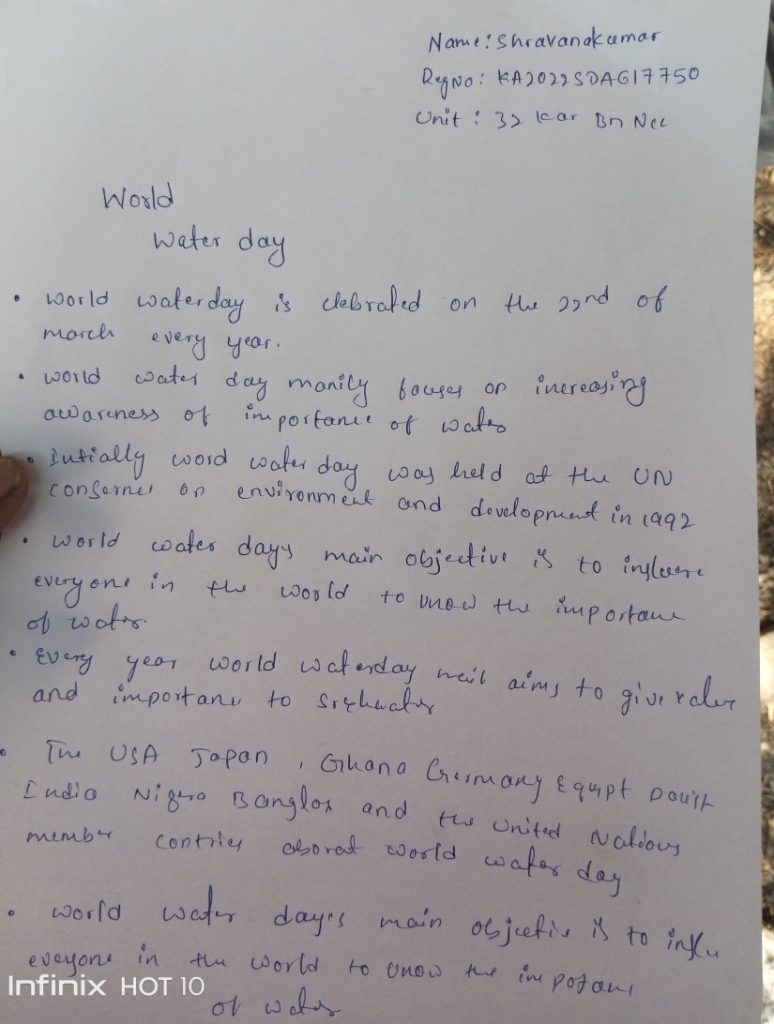 Name: Shravanakumar
RegNo: KA2022SDAG17750
Unit: 32 Kar Bn Ncc
World
Water day
• World waterday is clebrated on the 22nd of
march every year.
• World water day manily fouses on increasing
awarness of importance of water
• Intially word water day was held at the UN
on environment and development in 1992
• World water days main objective is to
everyone in the world to know the importane
of water.
• Every year world waterday aims to give
and importane to
• The USA Japan, Ghana Germany Equipt
India Nigera and the United Nations
member contries world water day
• World water dayes main objective is to
eveyone in the world to know the impotane
of water
Infinix HOT 10